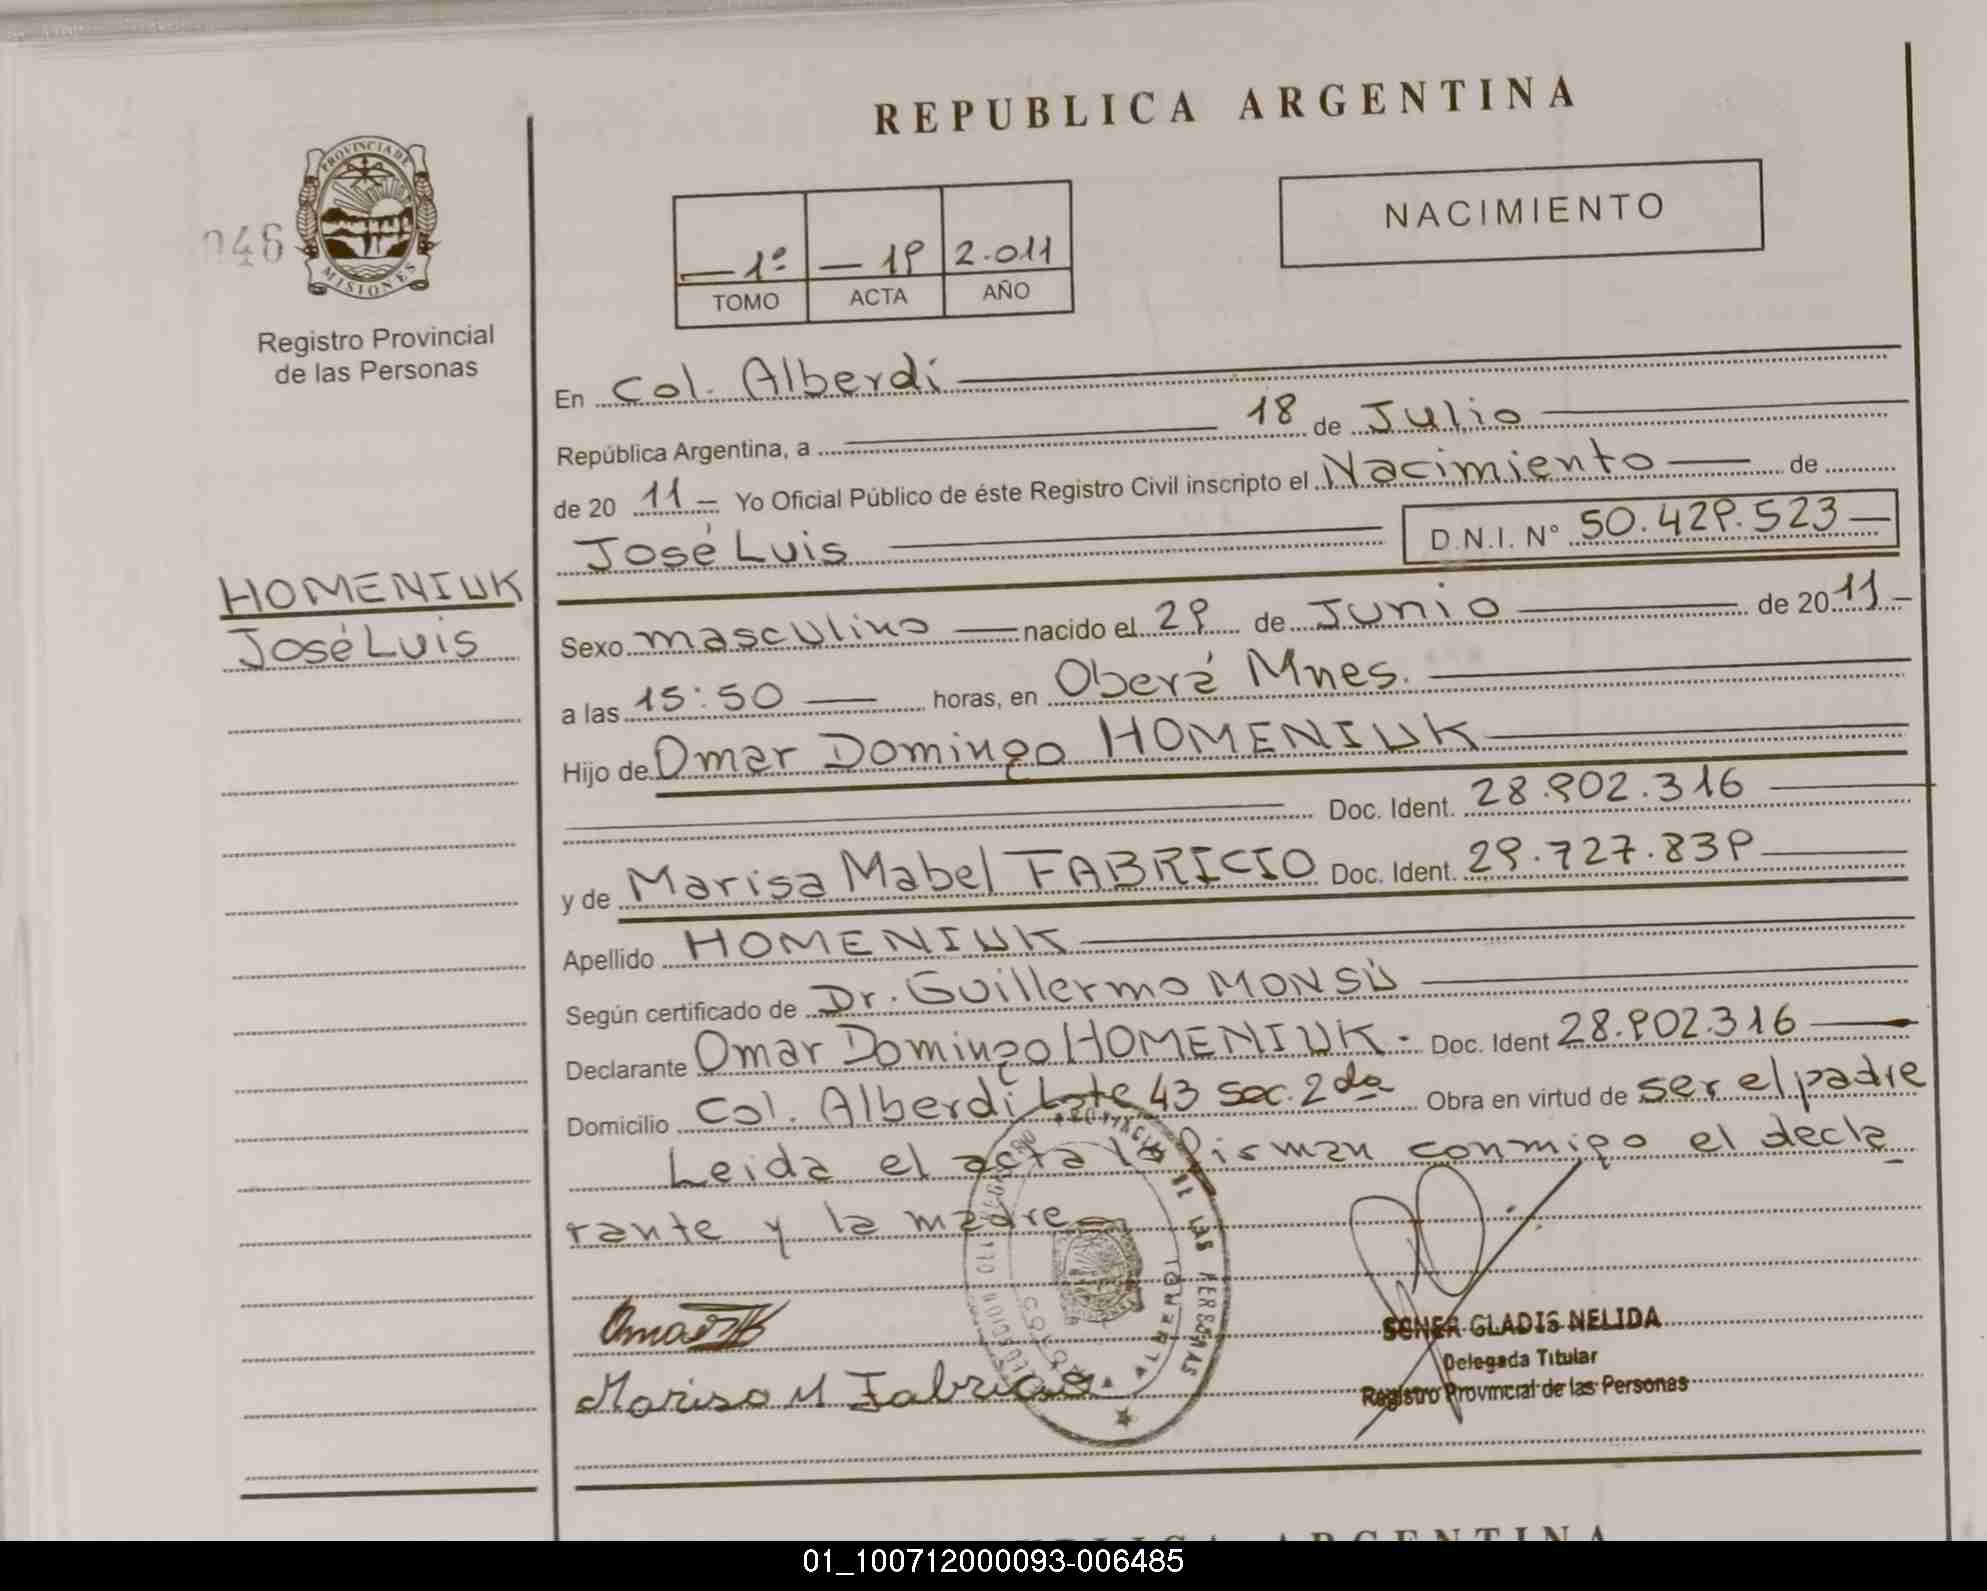 REPUBLICA ARGENTINA
PROVINCIA DE
MISIONES
046
Registro Provincial
de las Personas
NACIMIENTO
1º 19 2.011
TOMO ACTA AÑO
En Col. Alberdi
República Argentina, a 18 de Julio
de 20 11 - Yo Oficial Público de éste Registro Civil inscripto el Nacimiento de
José Luis D.N.I. Nº 50.429.523
HOMENIUK
José Luis
Sexo masculino nacido el 29 de Junio de 2011
a las 15:50 horas, en Oberá Mnes.
Hijo de Omar Domingo HOMENIUK
Doc. Ident. 28.902.316
y de Marisa Mabel FABRICIO Doc. Ident. 29.727.839
Apellido HOMENIUK
Según certificado de Dr. Guillermo MONSÚ
Declarante Omar Domingo HOMENIUK - Doc. Ident 28.902.316
Domicilio Col. Alberdi Lote 43 sec. 2da Obra en virtud de ser el padre
Leida el acta la firman conmigo el decla
rante y la madre
DE LAS PERSONAS
ALBERDI
Marisa M Fabricio
SCNER GLADIS NELIDA
Delegada Titular
Registro Provincial de las Personas
01_100712000093-006485